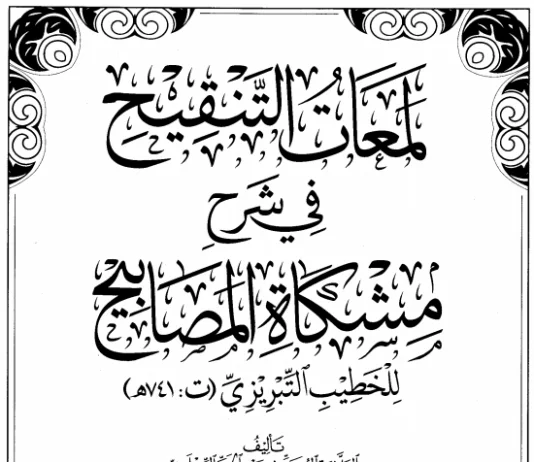 لَمَعَاتُ التَّنْقِيحِ
فِي شَرْحِ
مِشْكَاةِ الْمَصَابِيحِ
لِلْخَطِيبِ التِّبْرِيزِيِّ (ت: ٧٤١هـ)
تَأْلِيفُ